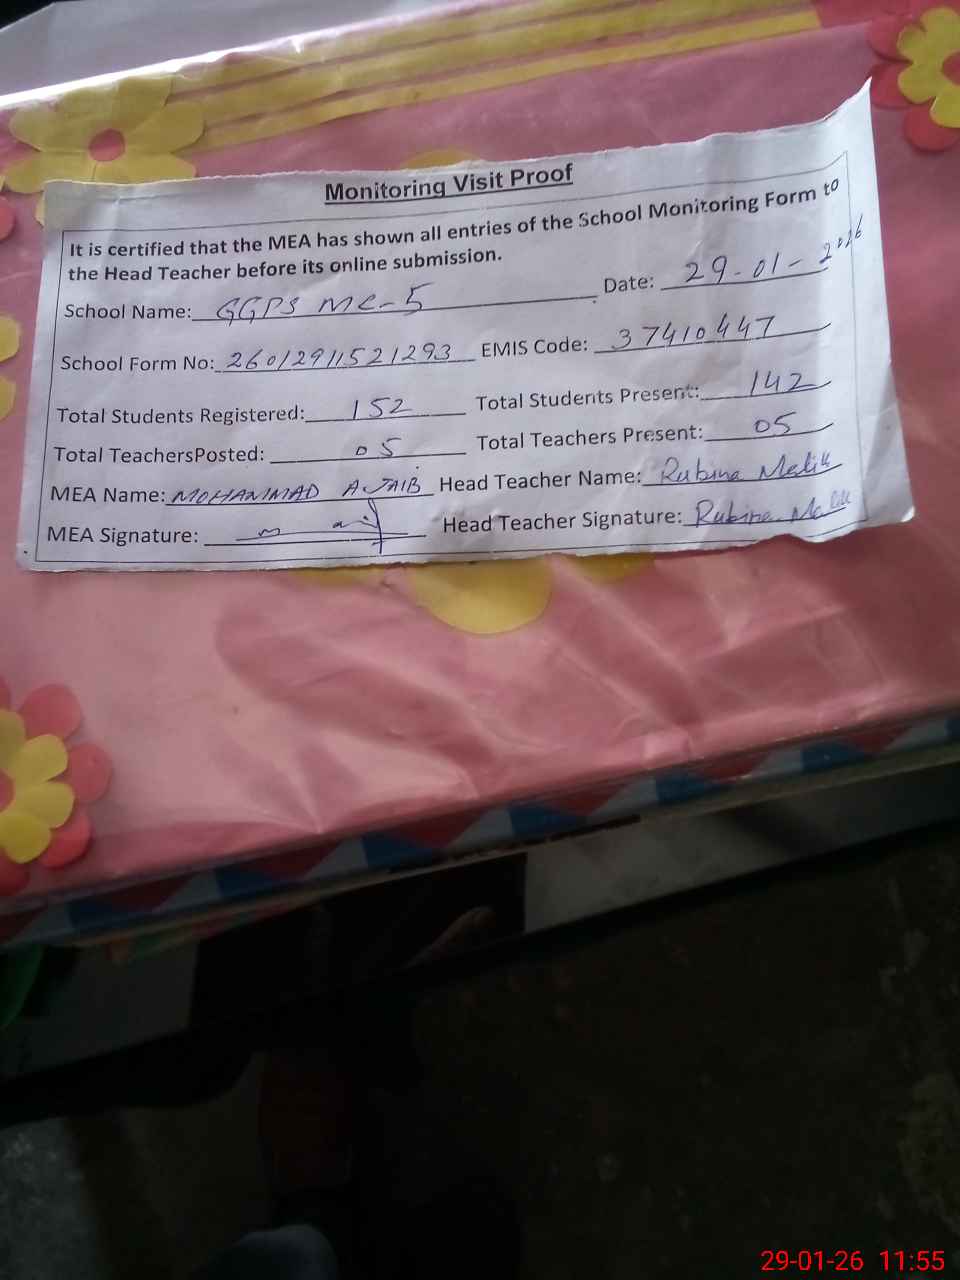 Monitoring Visit Proof
It is certified that the MEA has shown all entries of the School Monitoring Form to
the Head Teacher before its online submission.
School Name: GGPS MC-5 Date: 29-01-2026
School Form No: 26012911521293 EMIS Code: 37410447
Total Students Registered: 152 Total Students Present: 142
Total TeachersPosted: 05 Total Teachers Present: 05
MEA Name: MOHAMMAD AJAIB Head Teacher Name: Rubina Malik
MEA Signature: Head Teacher Signature: Rubina Malik
29-01-26 11:55